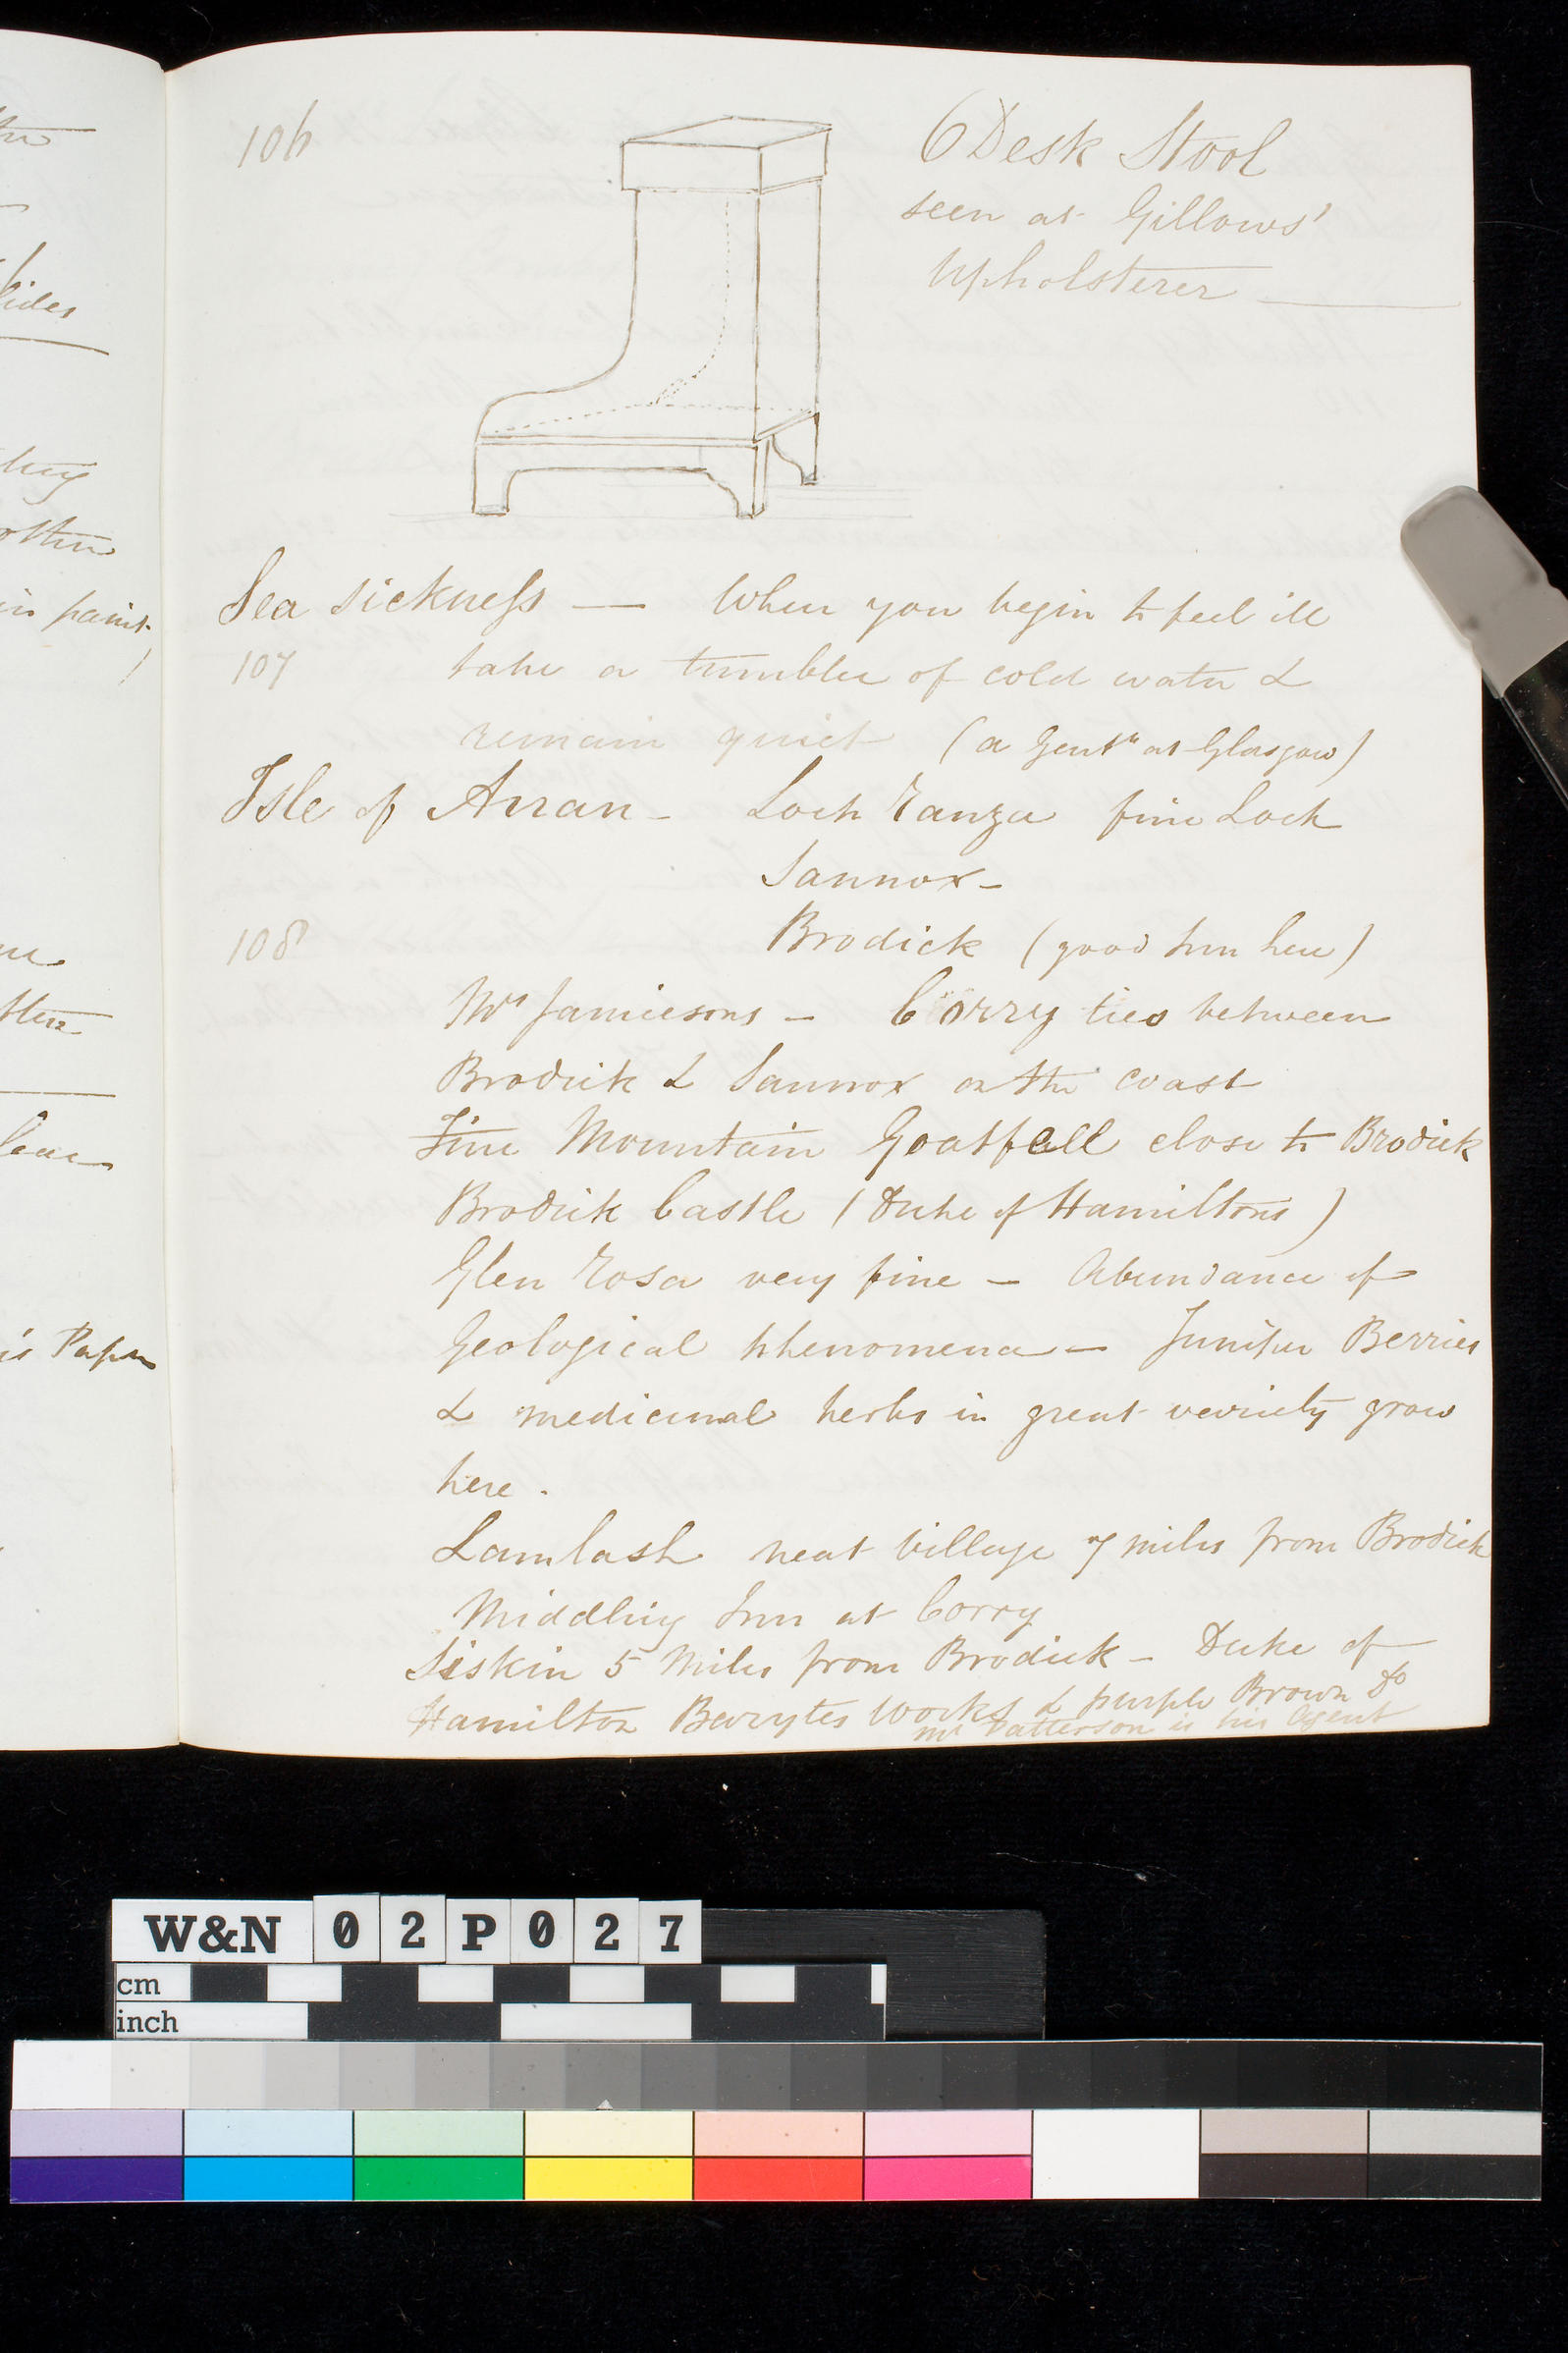 106
6 Desk Stool
seen at Gillows'
Upholsterer —
Sea sickness — When you begin to feel ill
107 take a tumbler of cold water &
remain quiet (a Gentn at Glasgow)
Isle of Arran - Loch Ranza fine Loch
Sannox -
108 Brodick (good Inn here)
Mrs Jamiesons - Corry lies between
Brodick & Sannox on the coast
Fine Mountain Goatfell close to Brodick
Brodick Castle (Duke of Hamiltons)
Glen Rosa very fine - Abundance of
Geological phenomena - Juniper Berries
& medicinal herbs in great variety grow
here.
Lamlash neat village 7 miles from Brodick
Middling Inn at Corry
Siskin 5 Miles from Brodick - Duke of
Hamilton Barytes Works & purple Brown Do
Mr Patterson is his Agent
lides
in paint
is Paper
W&N 02P027
cm
inch